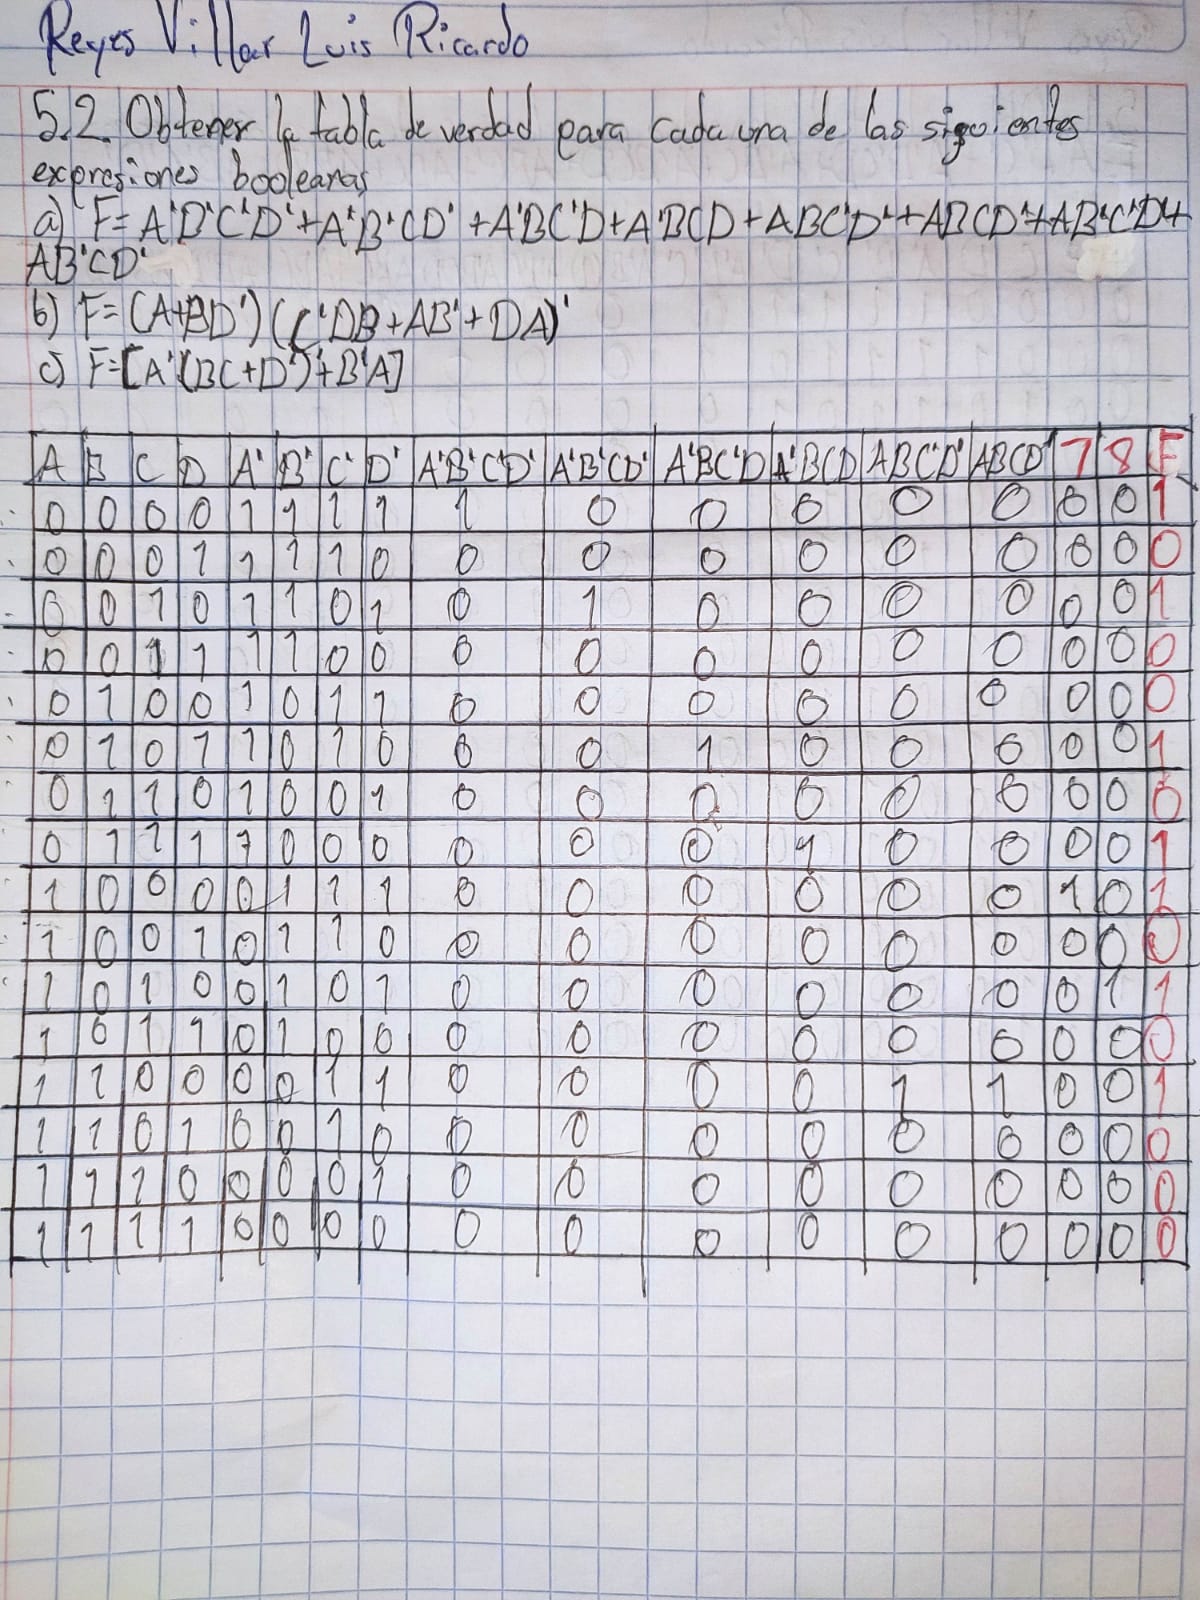 Reyes Villar Luis Ricardo
5.2. Obtener la tabla de verdad para cada una de las siguientes
expresiones booleanas
a) F= A'B'C'D'+A'B'CD'+A'BC'D+A'BCD+ABC'D'+ABCD'+AB'C'D'+
AB'CD'
b) F=(A+BD')(C'DB+AB'+DA)'
c) F=[A'(BC+D')'+B'A]
A B C D A' B' C' D' A'B'C'D' A'B'CD' A'BC'D A'BCD ABC'D' ABCD' 7 8 F
0 0 0 0 1 1 1 1 1 0 0 0 0 0 0 0 1
0 0 0 1 1 1 1 0 0 0 0 0 0 0 0 0 0
0 0 1 0 1 1 0 1 0 1 0 0 0 0 0 0 1
0 0 1 1 1 1 0 0 0 0 0 0 0 0 0 0 0
0 1 0 0 1 0 1 1 0 0 0 0 0 0 0 0 0
0 1 0 1 1 0 1 0 0 0 1 0 0 0 0 0 1
0 1 1 0 1 0 0 1 0 0 0 0 0 0 0 0 0
0 1 1 1 1 0 0 0 0 0 0 1 0 0 0 0 1
1 0 0 0 0 1 1 1 0 0 0 0 0 0 1 0 1
1 0 0 1 0 1 1 0 0 0 0 0 0 0 0 0 0
1 0 1 0 0 1 0 1 0 0 0 0 0 0 0 1 1
1 0 1 1 0 1 0 0 0 0 0 0 0 0 0 0 0
1 1 0 0 0 0 1 1 0 0 0 0 1 1 0 0 1
1 1 0 1 0 0 1 0 0 0 0 0 0 0 0 0 0
1 1 1 0 0 0 0 1 0 0 0 0 0 0 0 0 0
1 1 1 1 0 0 0 0 0 0 0 0 0 0 0 0 0